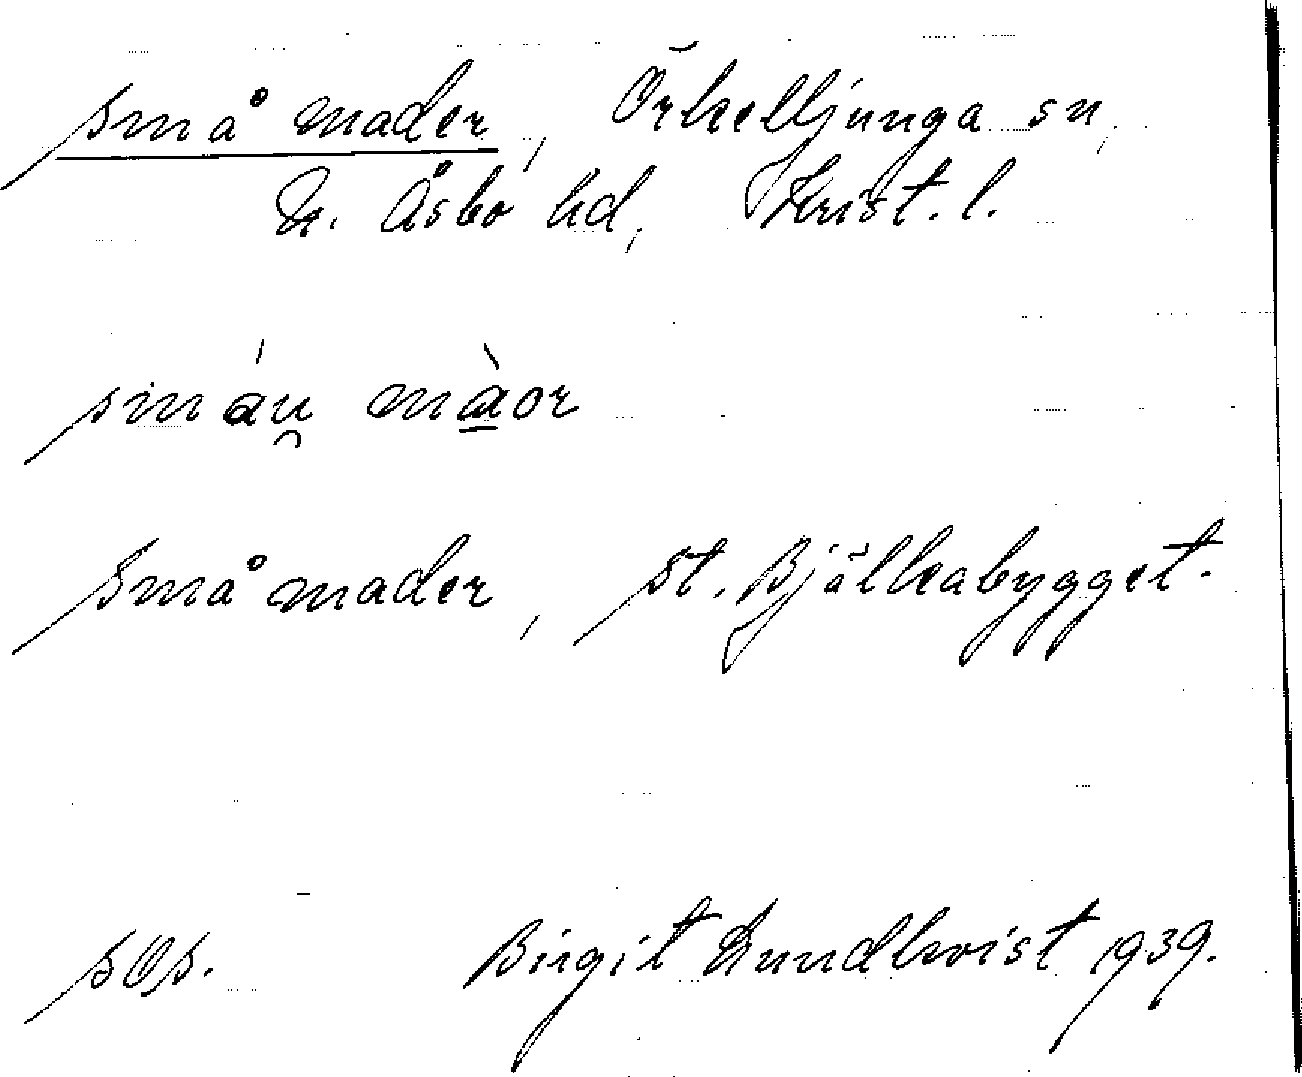 små mader, Örkelljunga sn,
N. Åsbo hd, Krist. l.
smáu̯ mà̱or
små mader, St. Bjälkabygget.
sOs. Birgit Lundkvist 1939.